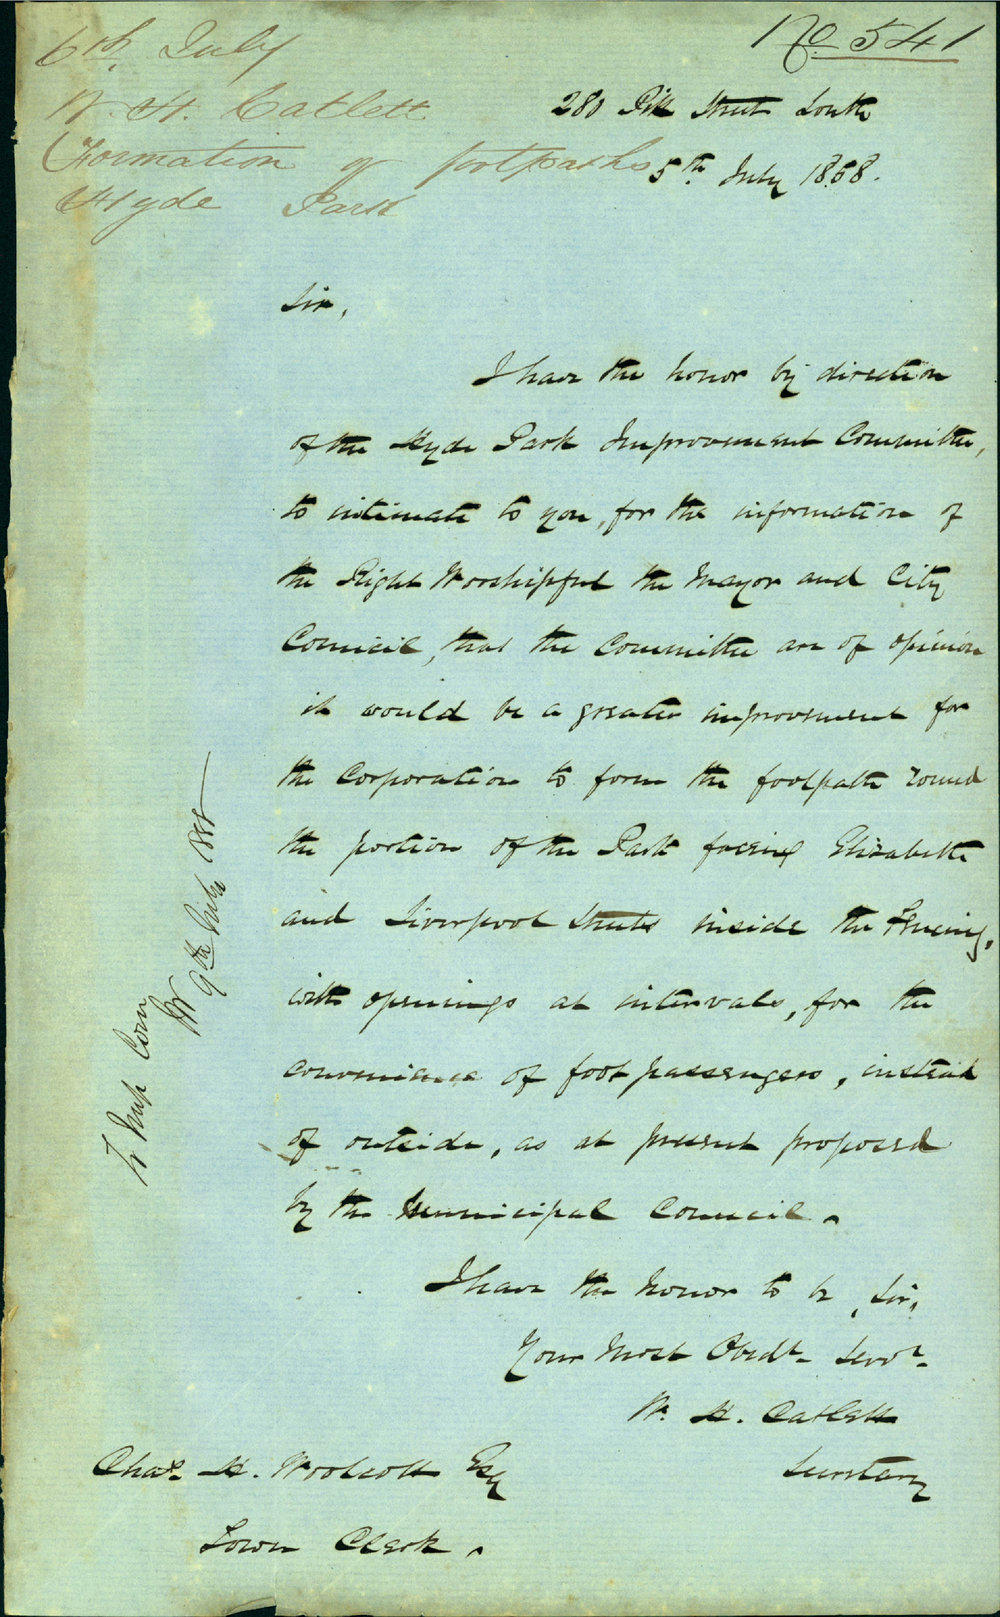 No 541
6th July
W. H. Catlett
Formation of footpaths
Hyde Park
280 Pitt Street South
5th July 1858.
Sir,
I have the honor by direction
of the Hyde Park Improvement Committee,
to intimate to you, for the information of
the Right Worshipful the Mayor and City
Council, that the Committee are of opinion
it would be a greater improvement for
the Corporation to form the footpath round
the portion of the Park facing Elizabeth
and Liverpool Streets inside the Fencing,
with openings at intervals, for the
convenience of foot passengers, instead
of outside, as at present proposed
by the Municipal Council.
I have the honor to be, Sir,
Your Most Obedt. Servt.
W. H. Catlett
Secretary
Chas. H. Woolcott Esq
Town Clerk.
To Imp Com
9th July 1858